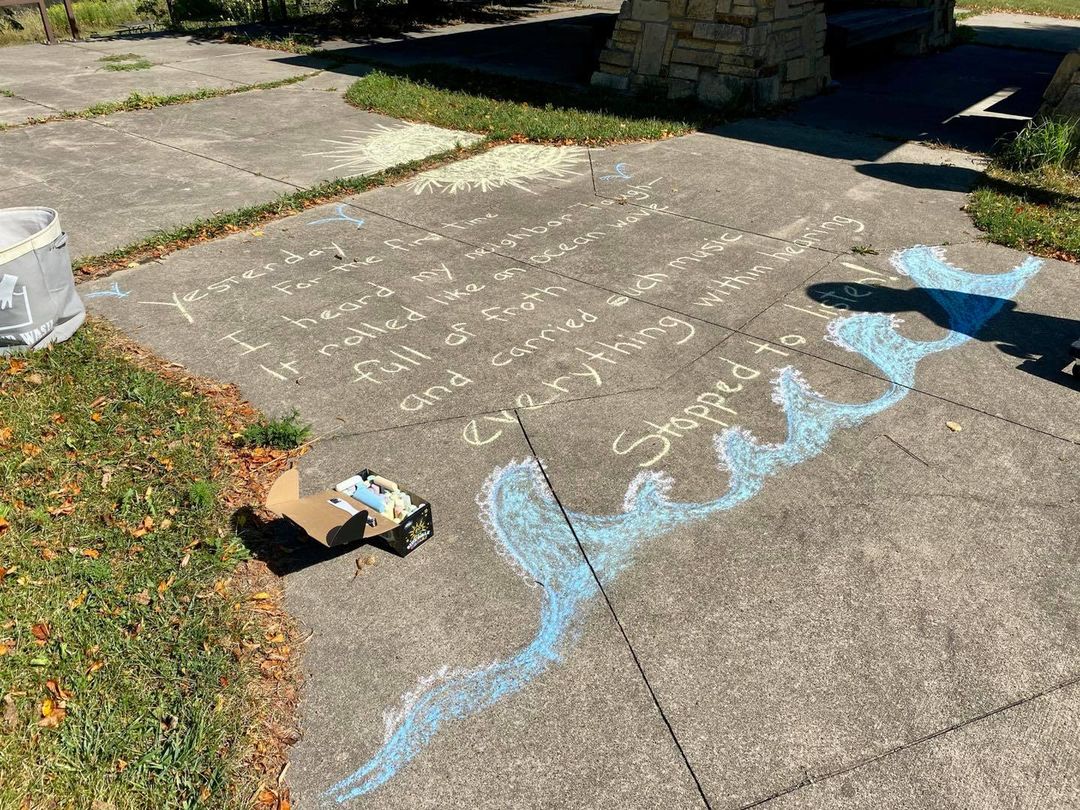 Yesterday
For the first time
I heard my neighbor laugh
It rolled like an ocean wave
full of froth
and carried such music
everything within hearing
Stopped to listen!